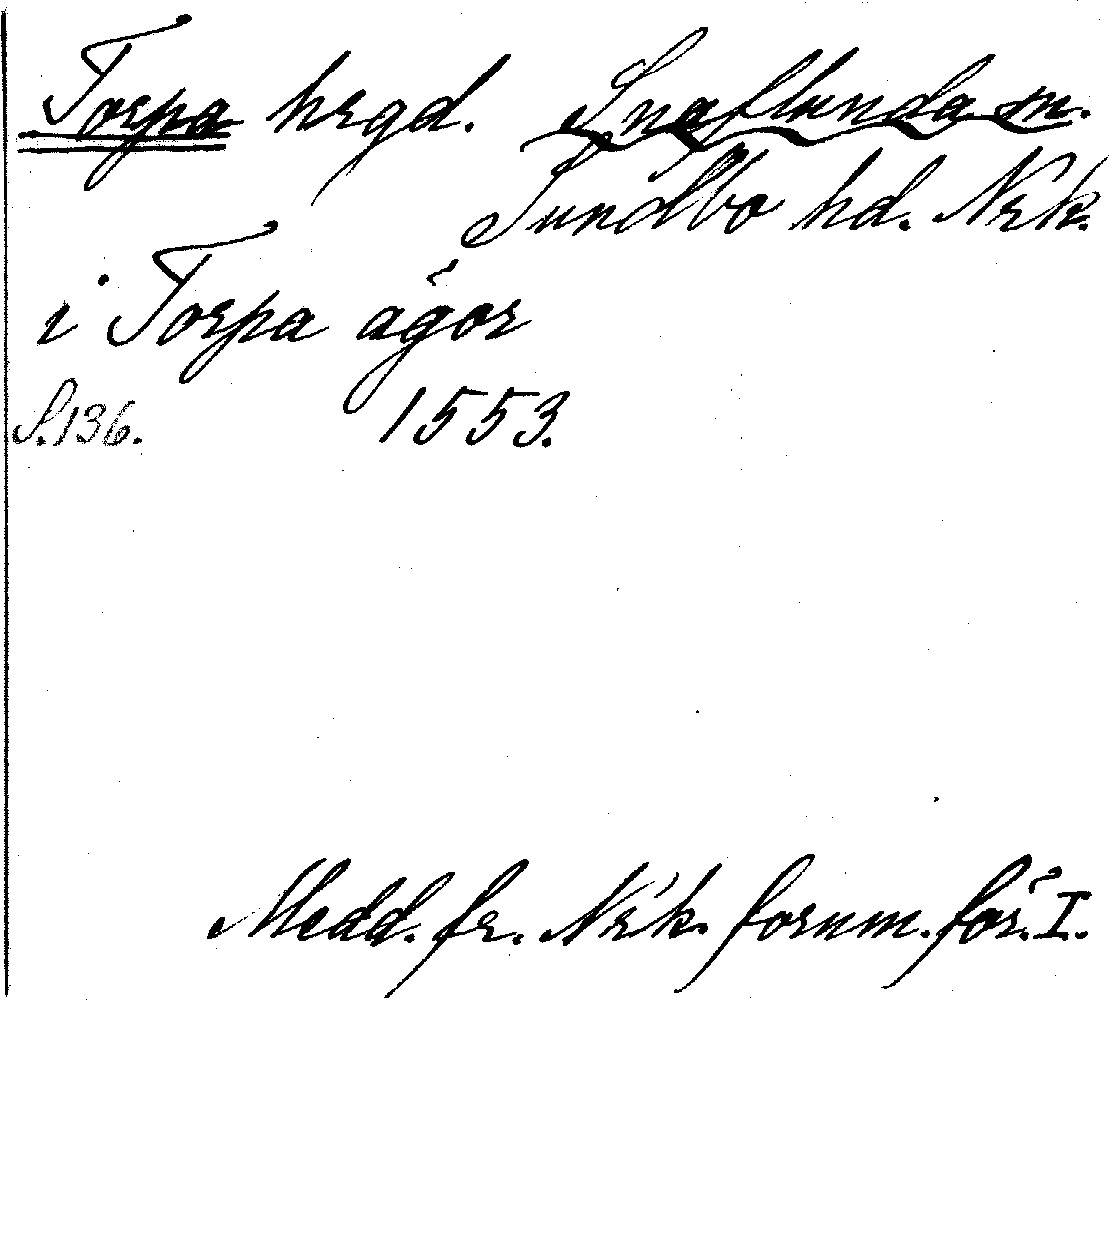 Torpa hrgd. Snaflunda sn.
Sundbo hd. Nrk.
i Torpa ägor
S. 136. 1553.
Medd. fr. Nrk. fornm. för. I.